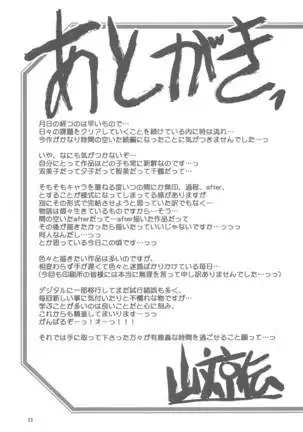 あとがき、
月日の経つのは早いもので…
日々の課題をクリアしていくことを続けている内に時は流れ…
今作がかなり時間の空いた続編になったことに気がつきませんでした…っ
いや、なにも気がつかないぞ…
自分にとって作品はどの子も常に新鮮なのですっ
双美子だって智美だって千鶴だってっ
そもそもキャラを重ねる度いつの間にか無印、過程、after、
とすることが様式になってしまってる感がありますが
別にその形式で完結させようと思っていた訳でもなく…
物語は個々生きているものですから…そう…
間の空いたafterだって…after描いた作品だって
その後が描きたかったら描いたっていいじゃないですか…っっ
同人なんだし…っっ
とか思っている今日この頃です…っ
色々と描きたい作品は多いのですが、
相変わらず手が遅くて色々と迷惑ばかりかけている毎日…
(今回も印刷所の皆様には本当に無理を言って申し訳ありませんでした…)
デジタルに一部移行してまだ試行錯誤も多く、
毎回新しい事に気付いたりと不慣れな物ですが…
学ぶことが多いのは良いことだと心に刻み、
これからも精進してまいります…っっ
がんばるぞーっ!オーっ!!!
それでは手に取って下さった方々が有意義な時間を過ごせること願って…っ
33